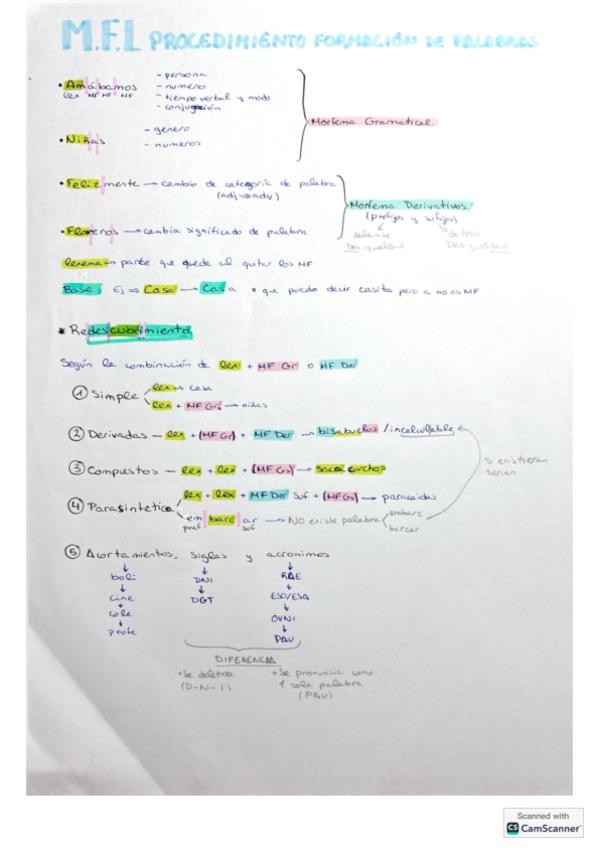 M.F.L PROCEDIMIENTO FORMACIÓN DE PALABRAS
• Amábamos
lex MF MF MF
- persona
- numero
- tiempo verbal y modo
- conjugación
• Niñas
- genero
- numeros
Morfema Gramatical
• Felizmente → cambio de categoría de palabra
(adj → adv)
• Floreros → cambia significado de palabra
Morfema Derivativos.
(prefijos y sufijos)
delante
detrás
Desigualdad
Desigualdad
lexema → parte que queda al quitar los MF
Base: Ej ⇒ Casa → Casa * que puedo decir casita pero a no es MF
* Redescubrimiento
Según la combinación de lex + MF Gr o MF Der
① Simple
lex → casa
lex + MF Gr → niñas
② Derivadas — lex + (MF Gr) + MF Der → bisabuelos / incalculable
③ Compuestos — lex + lex + (MF Gr) → sacacorchos
si existieran
serian
④ Parasintetica
lex + lex + MF Der suf + (MF Gr) → paracaidas
em barc ar → NO existe palabra
pref suf
embarc
barcar
⑤ Acortamientos, siglas y acronimos
boli
cine
cole
profe
DNI
DGT
RAE
ESO/ESA
OVNI
PAU
DIFERENCIA
• Se deletrea
(D-N-I)
• Se pronuncia como
1 sola palabra
(PAU)
Scanned with
CS CamScanner